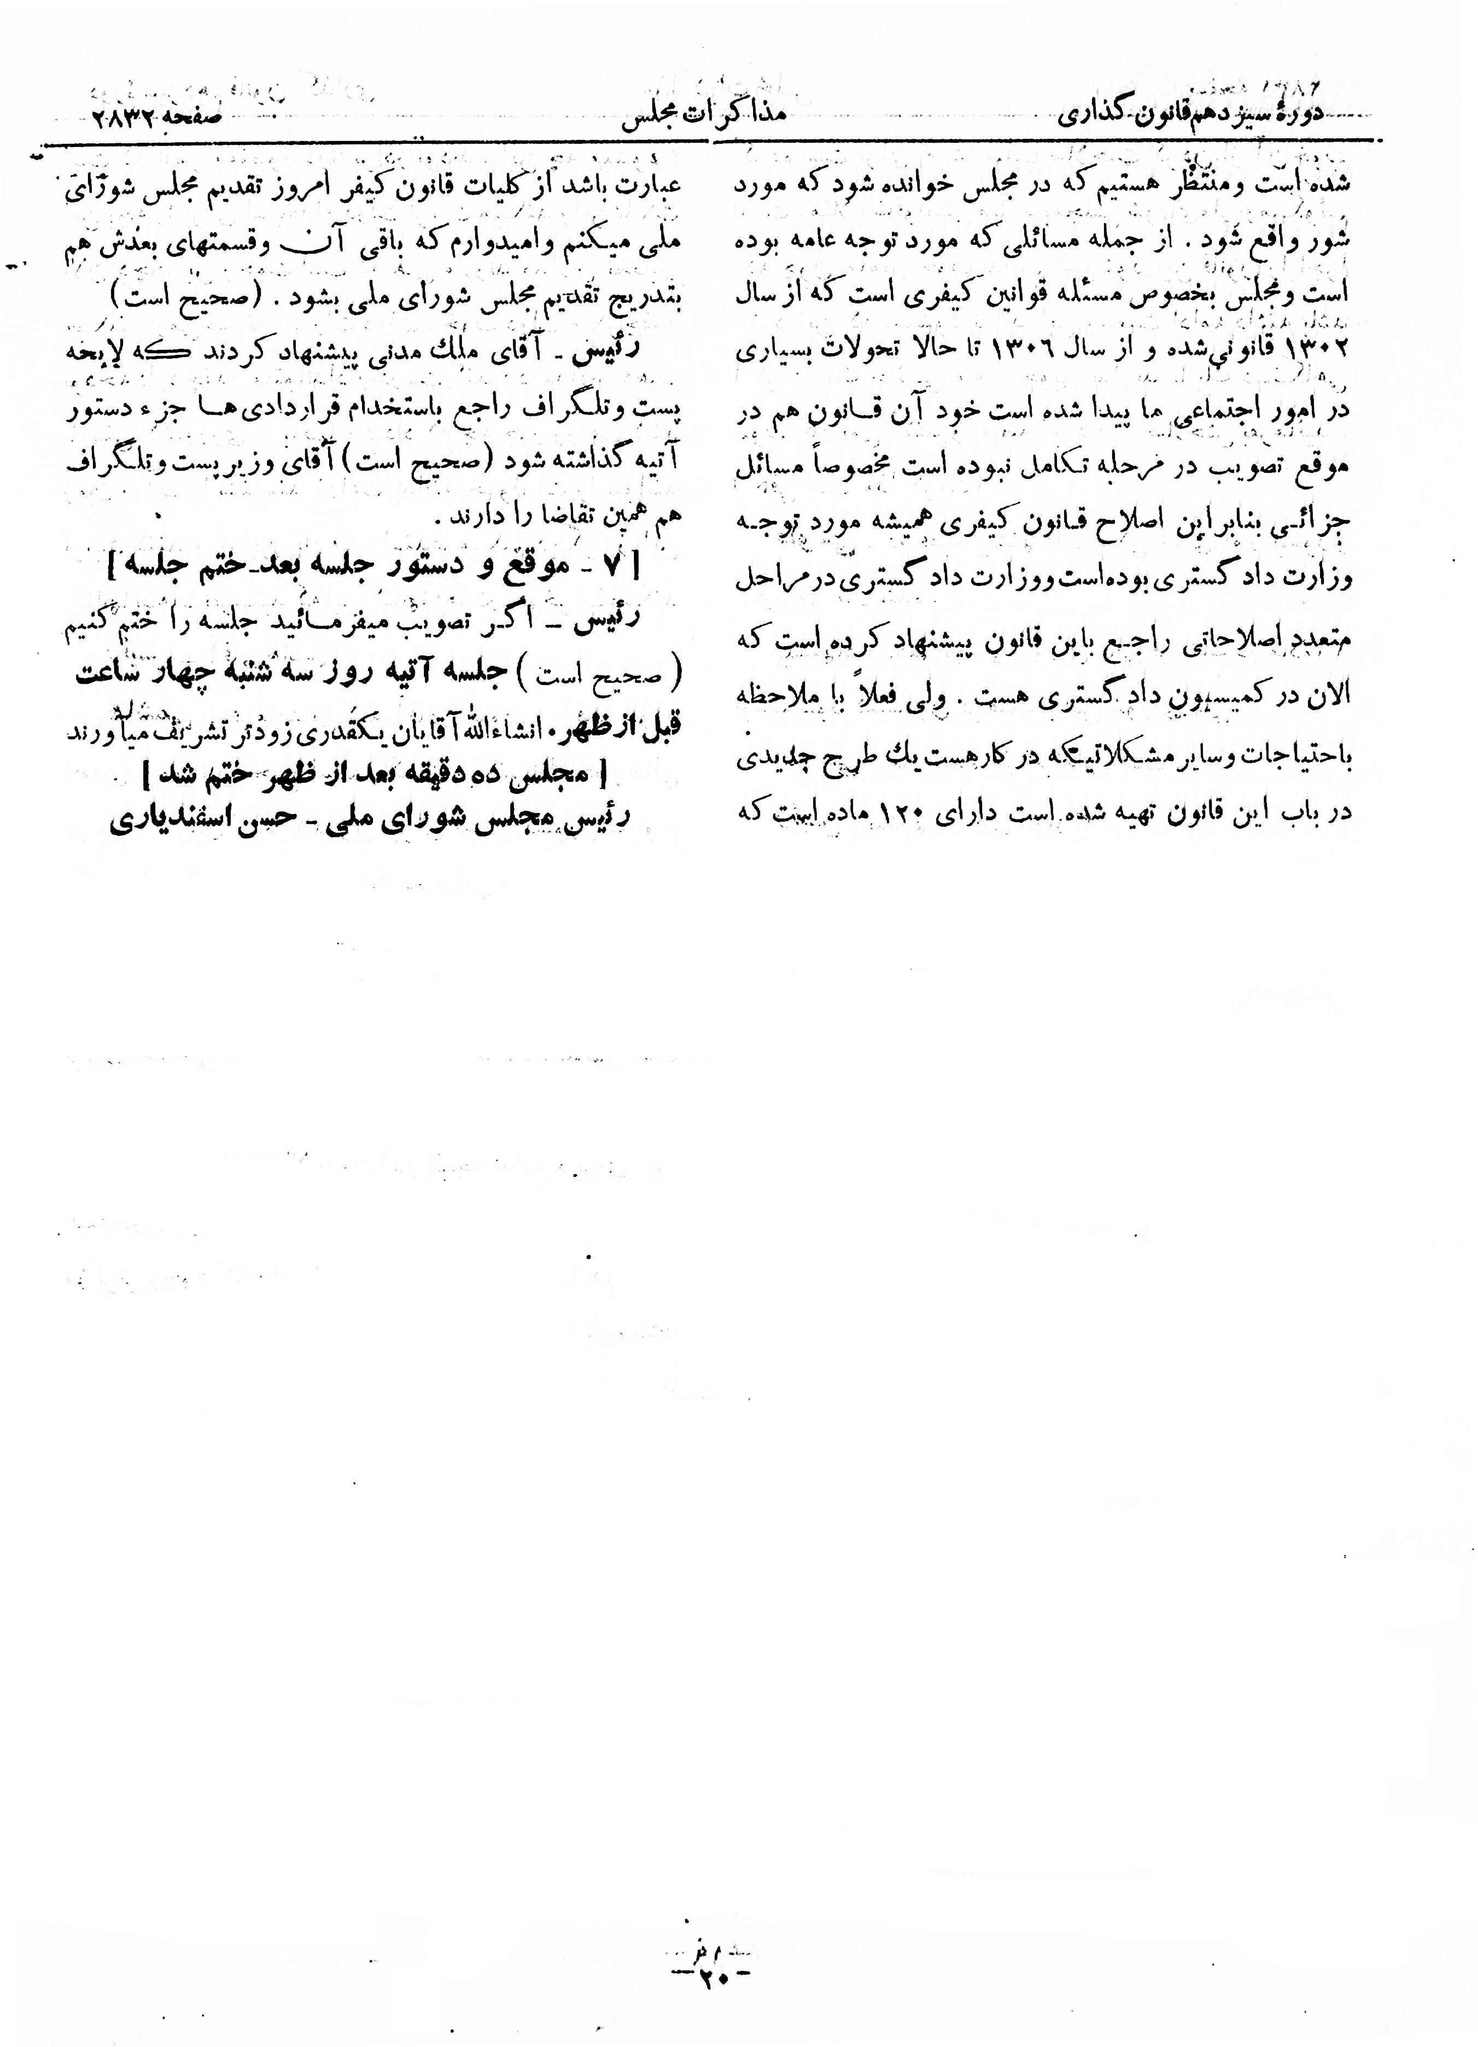 دورهٔ سیزدهم قانون گذاری
مذاکرات مجلس
صفحه ۲۸۳۲
شده است ومنتظر هستیم که در مجلس خوانده شود که مورد
شور واقع شود . از جمله مسائلی که مورد توجه عامه بوده
است ومجلس بخصوص مسئله قوانین کیفری است که از سال
۱۳۰۲ قانونی شده و از سال ۱۳۰۶ تا حالا تحولات بسیاری
در امور اجتماعی ما پیدا شده است خود آن قانون هم در
موقع تصویب در مرحله تکامل نبوده است مخصوصاً مسائل
جزائی بنابراین اصلاح قانون کیفری همیشه مورد توجه
وزارت دادگستری بوده‌است ووزارت دادگستری در مراحل
متعدد اصلاحاتی راجع باین قانون پیشنهاد کرده است که
الان در کمیسیون دادگستری هست . ولی فعلاً با ملاحظه
باحتیاجات وسایر مشکلاتیکه در کار هست یك طرح جدیدی
در باب این قانون تهیه شده است دارای ۱۲۰ ماده است که
عبارت باشد از کلیات قانون کیفر امروز تقدیم مجلس شورای
ملی میکنم وامیدوارم که باقی آن وقسمتهای بعدش هم
بتدریج تقدیم مجلس شورای ملی بشود . (صحیح است)
رئیس ـ آقای ملك مدنی پیشنهاد کردند که لایحه
پست وتلگراف راجع باستخدام قراردادی ها جزء دستور
آتیه گذاشته شود (صحیح است) آقای وزیر پست وتلگراف
هم همین تقاضا را دارند .
[ ۷ ـ موقع و دستور جلسه بعد ـ ختم جلسه ]
رئیس ـ اگر تصویب میفرمائید جلسه را ختم کنیم
( صحیح است ) جلسه آتیه روز سه شنبه چهار ساعت
قبل از ظهر . انشاءالله آقایان یکقدری زودتر تشریف میآورند
[ مجلس ده دقیقه بعد از ظهر ختم شد ]
رئیس مجلس شورای ملی ـ حسن اسفندیاری
ـ ۲۰ ـ